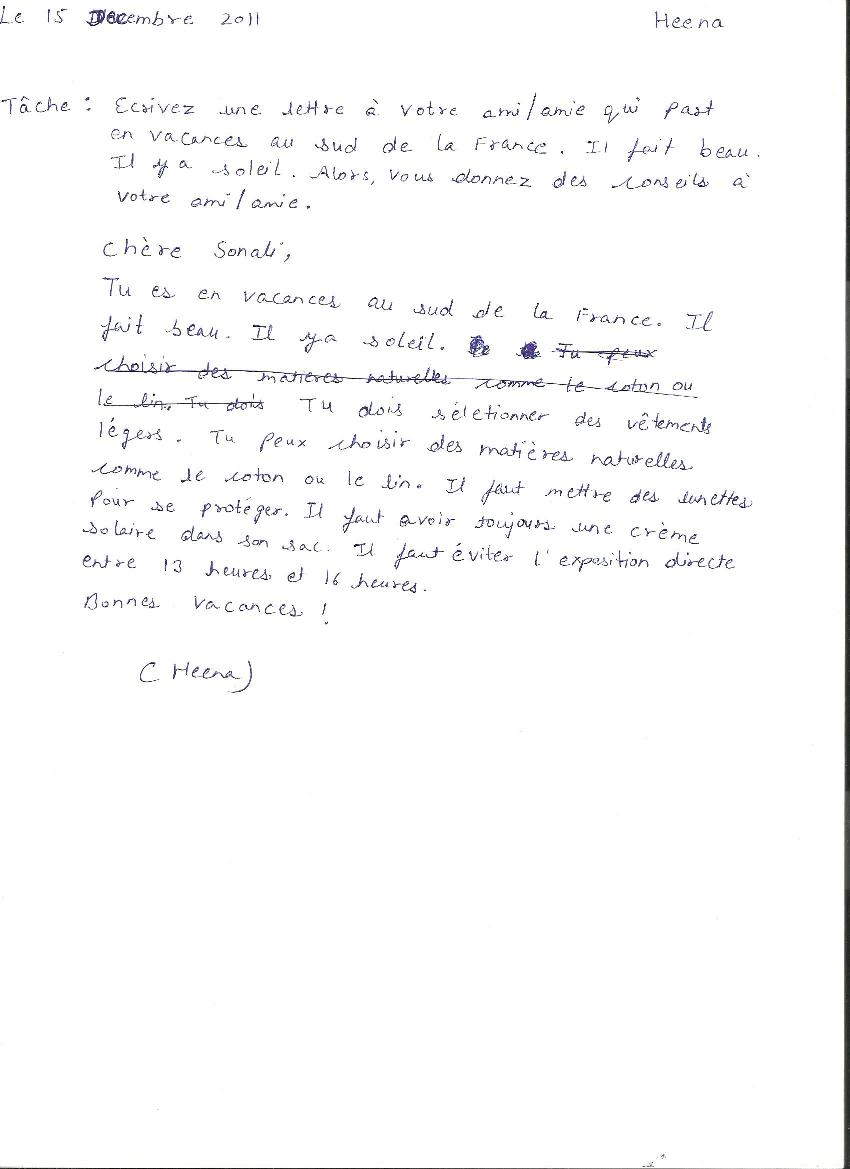 Le 15 Décembre 2011 Heena
Tâche : Ecrivez une lettre à votre ami/amie qui part
en vacances au sud de la France. Il fait beau.
Il y a soleil. Alors, vous donnez des conseils à
votre ami/amie.
Chère Sonali,
Tu es en vacances au sud de la France. Il
fait beau. Il y a soleil. Tu peux
choisir des matières naturelles comme le coton ou
le lin. Tu dois Tu dois séletionner des vêtements
légers. Tu peux choisir des matières naturelles
comme le coton ou le lin. Il faut mettre des lunettes
pour se protéger. Il faut avoir toujours une crème
solaire dans son sac. Il faut éviter l'exposition directe
entre 13 heures et 16 heures.
Bonnes vacances !
(Heena)